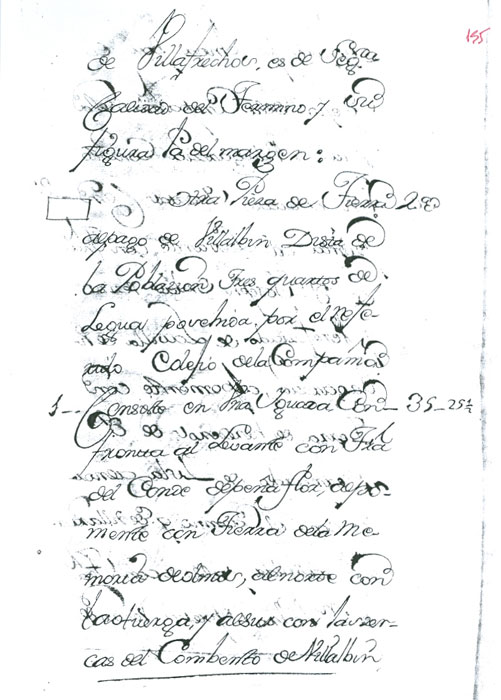 155
de Villafrechos, es de Seg.da
Calidad del Termino, y su
figura la del margen:
otra Pieza de Tierra 2.a
al pago de Villalbin Dista de
la Poblacion tres quartos de
Legua poveida por el Refe-
rido Colejio de la Compañia
1 Consiste en una Yguada Con 35-25 1/2
fronta al Levante con Tra
del Conde de peña flor, al po-
niente con Tierra de la Me-
moria de olmos, al norte con
la otuerga, y al sur con las zer-
cas del Combento de Villalbin